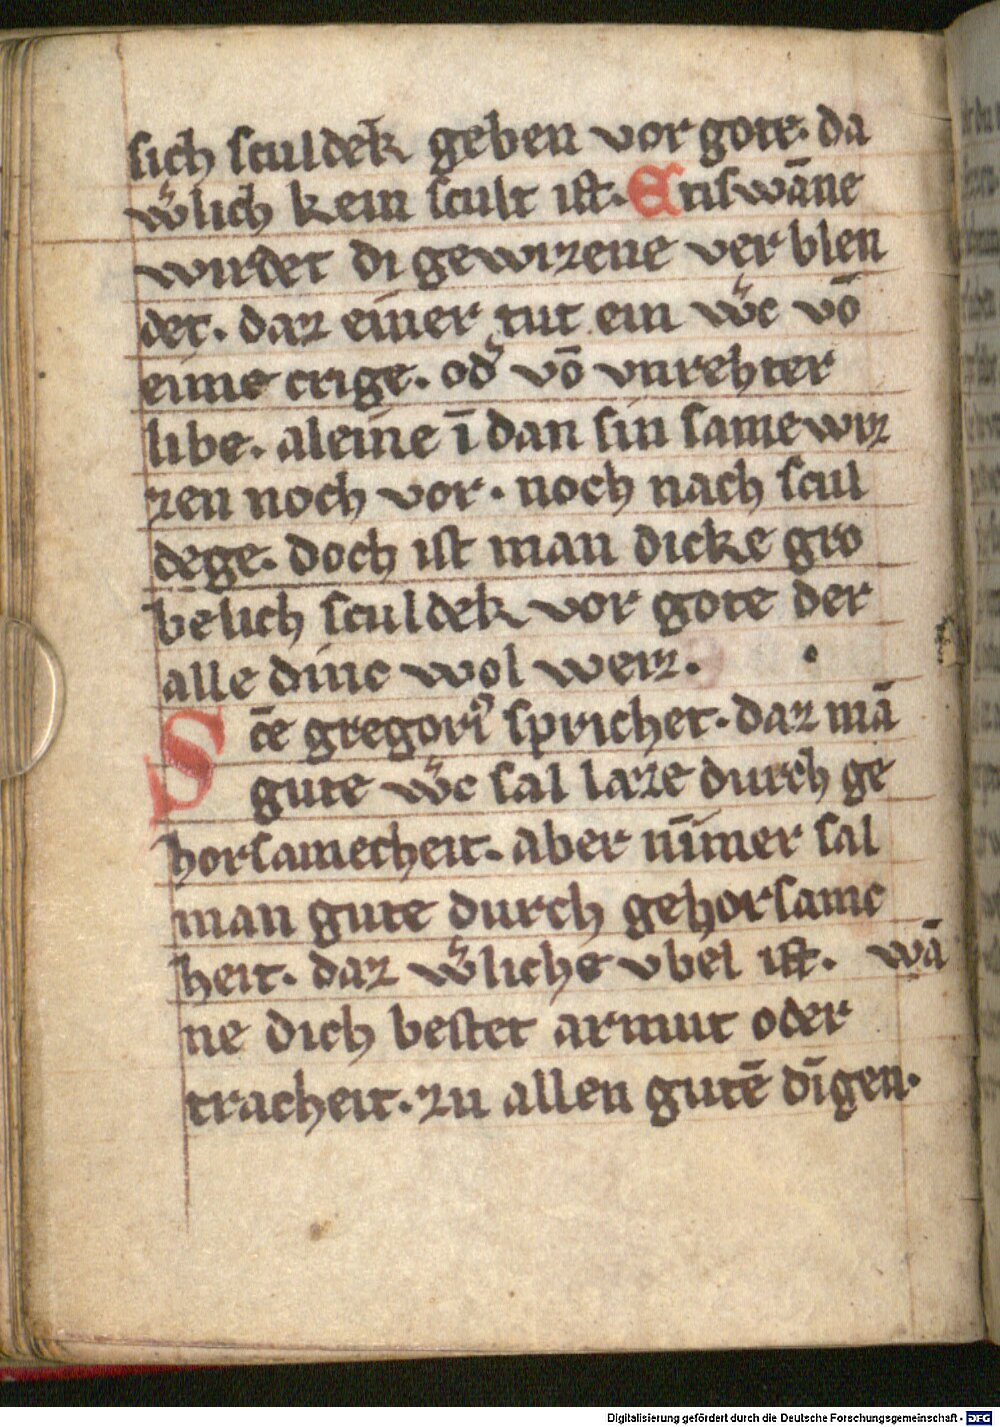 sich sculdek geben vor gote. da
w̾lich kein scult ist. Etiswāne
wirdet di gewizene verblen
det. daz einer tut ein w̾c vō
eime crige. od̾ vō vnrehter
libe. aleine ī dan sin samewiz
zen noch vor. noch nach scul
dege. doch ist man dicke gro
belich sculdek vor gote der
alle dinc wol weiz.
Sc̄e gregori᷒ sprichet. daz mā
gute w̾c sal laze durch ge
horsamecheit. aber nīmer sal
man gute durch gehorsamc
heit. daz w̾lichs vbel ist. wā
ne dich bestet armut oder
tracheit. zu allen gutē dīgen.
Digitalisierung gefördert durch die Deutsche Forschungsgemeinschaft - DFG